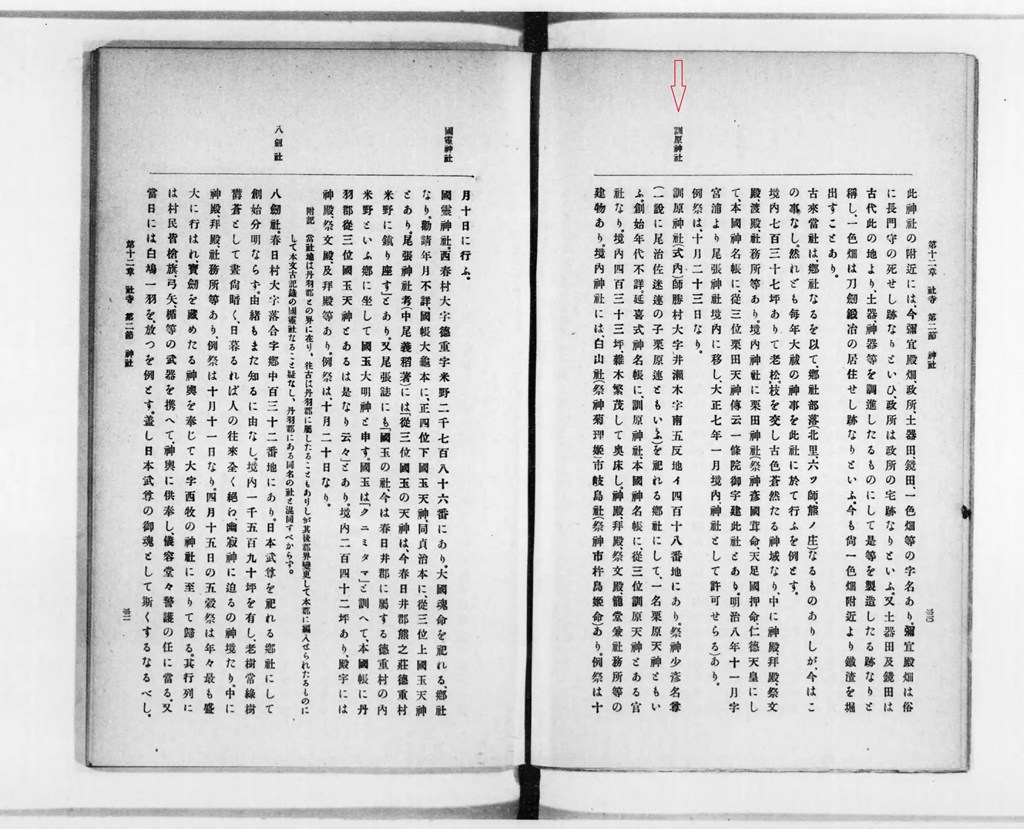 第十二章 社寺 第二節 神社
三〇
此神社の附近には、今彌宜殿畑政所、土器田、鏡田、一色畑等の字名あり、彌宜殿畑は俗
に長門守の死せし跡なりといひ、政所は政所の宅跡なりといふ、又土器田及鏡田は
古代此の地より、土器、神器等を調進したるものにして是等を製造したる跡なりと
稱し、一色畑は刀劍鍛冶の居住せし跡なりといふ、今も尙一色畑附近より鐵渣を堀
出すことあり。
古來當社は、鄕社なるを以て鄕社部落(北里、六ツ師、熊ノ庄)なるものありしが、今はこ
の事なし。然れども每年大祓の神事を此社に於て行ふを例とす。
境內七百三十七坪ありて老松、枝を交し古色蒼然たる神域なり、中に神殿、拜殿、祭文
殿、渡殿、社務所等あり。境內神社に栗田神社(祭神彥國葺命、天足國押命、仁德天皇)にし
て、本國神名帳に、從三位栗田天神傳云一條院御宇建此社とあり。明治八年十一月字
宮浦より尾張神社境內に移し、大正七年一月境內神社として許可せらる)あり。
例祭は、十月二十三日なり。
訓原神社
訓原神社(式內)師勝村大字井瀨木字南五反地イ四百十八番地にあり。祭神少彥名尊
(一說に尾治佐迷連の子栗原連ともいふ)を祀れる鄕社にして、一名栗原天神ともい
ふ。創始年代不詳、延喜式神名帳に、訓原神社、本國神名帳に從三位訓原天神とある官
社なり、境內四百三十三坪、雜木繁茂して奥床し、神殿、拜殿、祭文殿、籠堂兼社務所等の
建物あり、境內神社には白山社(祭神菊理姬)市岐島社(祭神市杵島姬命)あり。例祭は十
月十日に行ふ。
國靈神社
國靈神社。西春村大字德重字米野二千七百八十六番にあり、大國魂命を祀れる、鄕社
なり、勸請年月不詳國帳大龜本に、正四位下國玉天神、同貞治本に、從三位上國玉天神
とあり。尾張神社考(中尾義稻著)には「從三位國玉の天神は、今春日井郡熊之莊德重村
米野に鎭り座す」とあり、又尾張誌にも「國玉の社今は春日井郡に屬する德重村の內
米野といふ鄕に坐して國玉大明神と申す。國玉は「クニミタマ」と訓へて、本國帳に丹
羽郡從三位國玉天神とあるは是なり云々」とあり、境內二百四十二坪あり、殿宇には
神殿、祭文殿及拜殿等あり。例祭は、十月二十日なり。
附記 當社地は丹羽郡との界に在り、往古は丹羽郡に屬したることもありしが其後郡界變更して本郡に編入せられたるものに
して本文古記錄の國靈社なること疑なし、丹羽郡にある同名の社と混同すべからず。
八劍社
八劍社。春日村大字落合字鄕中百三十二番地にあり、日本武尊を祀れる鄕社にして
創始分明ならず。由緖もまた知るに由なし、境內一千五百九十坪を有し、老樹常綠樹
欝蒼として晝尙暗く、日暮るれば人の往來全く絕ゆ、幽寂神に迫るの神境たり。中に
神殿、拜殿、社務所等あり例祭は十月十一日なり。四月十五日の五穀祭は年々最も盛
大に行はれ、寶劍を藏めたる神輿を奉じて大字西牧の神社に至りて歸る。其行列に
は村民皆槍旗、弓矢、楯等の武器を携へて、神輿に供奉し、儀容堂々警護の任に當る。又
當日には白鳩一羽を放つを例とす。蓋し日本武尊の御魂として斯くするなるべし。
第十二章 社寺 第二節 神社
三一